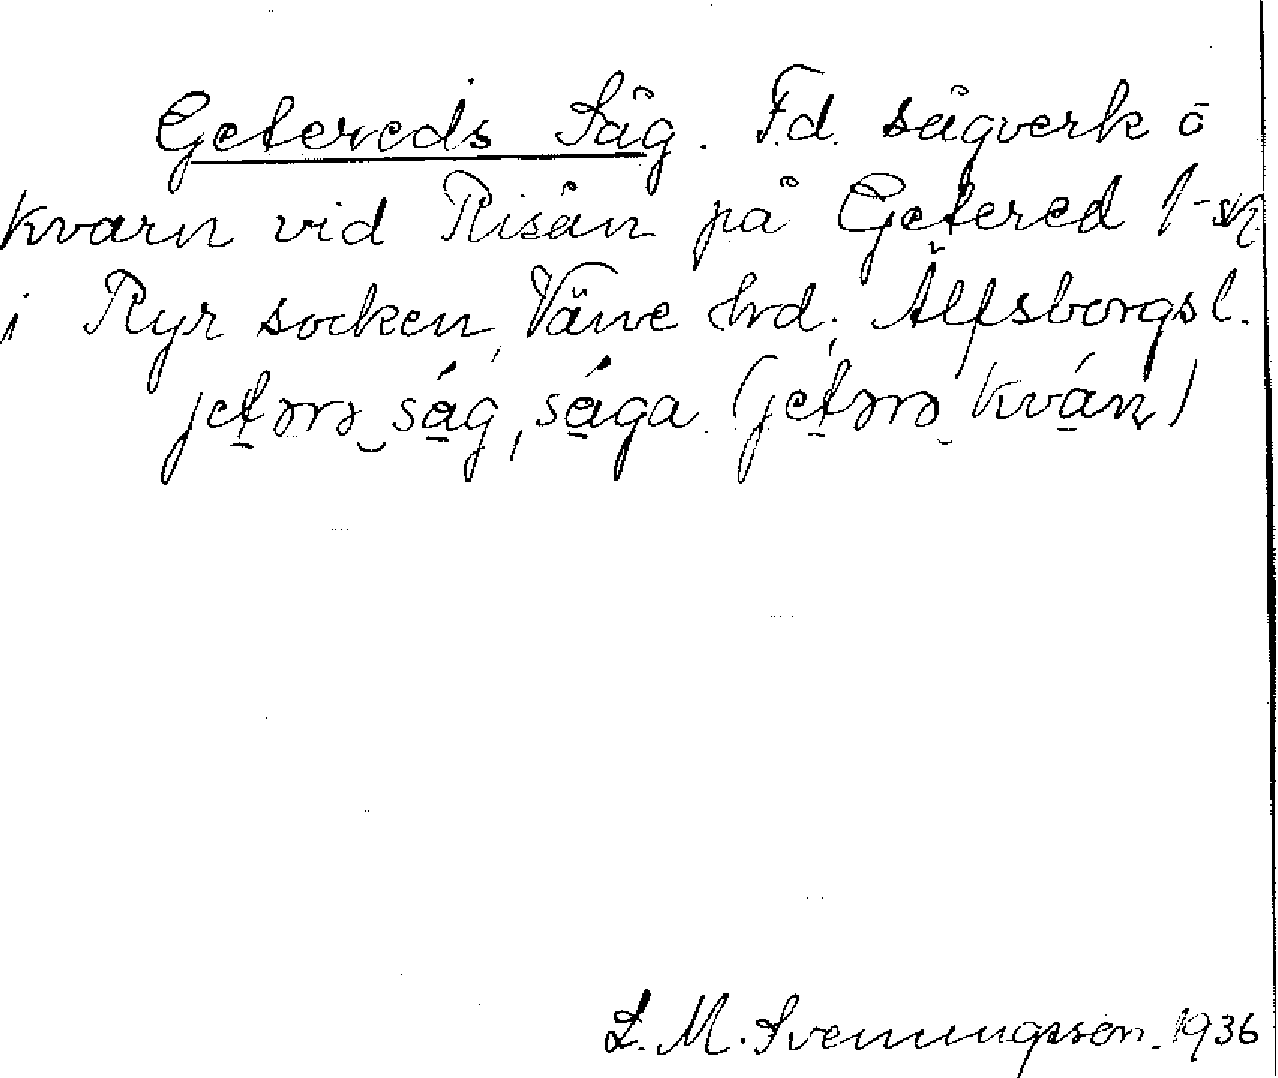 Getereds Såg. F.d. sågverk o
kvarn vid Risån på Getered 1-sk
i Ryr socken, Väne hrd, Älfsborgs l.
jetərə såg, såga. (jetərə kván)
L. M. Svenungsson. 1936